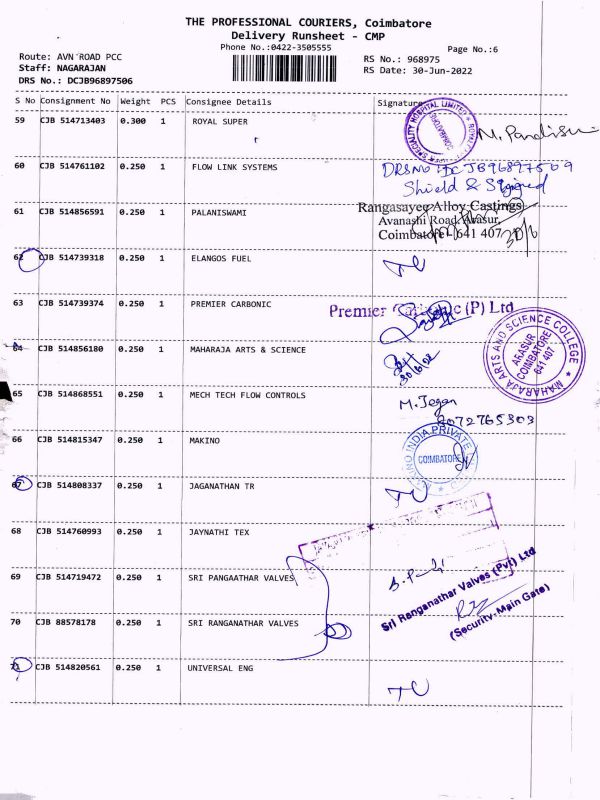 THE PROFESSIONAL COURIERS, Coimbatore
Delivery Runsheet - CMP
Phone No.:0422-3505555
Page No.:6
Route: AVN ROAD PCC
RS No.: 968975
Staff: NAGARAJAN
RS Date: 30-Jun-2022
DRS No.: DCJB96897506
S No Consignment No Weight PCS Consignee Details Signature
59 CJB 514713403 0.300 1 ROYAL SUPER
SPECIALITY HOSPITAL LIMITED
COIMBATORE
60 CJB 514761102 0.250 1 FLOW LINK SYSTEMS
Signed
61 CJB 514856591 0.250 1 PALANISWAMI
Rangasayee Alloy Castings
Avanashi Road, Arasur,
Coimbatore - 641 407
62 CJB 514739318 0.250 1 ELANGOS FUEL
63 CJB 514739374 0.250 1 PREMIER CARBONIC
Premier (P) Ltd
64 CJB 514856180 0.250 1 MAHARAJA ARTS & SCIENCE
MAHARAJA ARTS AND SCIENCE COLLEGE
ARASUR
COIMBATORE
641 407
65 CJB 514868551 0.250 1 MECH TECH FLOW CONTROLS
M. Jegan
8072765303
66 CJB 514815347 0.250 1 MAKINO
MAKINO INDIA PRIVATE
COIMBATORE
67 CJB 514808337 0.250 1 JAGANATHAN TR
68 CJB 514760993 0.250 1 JAYNATHI TEX
69 CJB 514719472 0.250 1 SRI PANGAATHAR VALVES
Sri Ranganathar Valves (Pvt) Ltd
(Security-Main Gate)
70 CJB 88578178 0.250 1 SRI RANGANATHAR VALVES
71 CJB 514820561 0.250 1 UNIVERSAL ENG